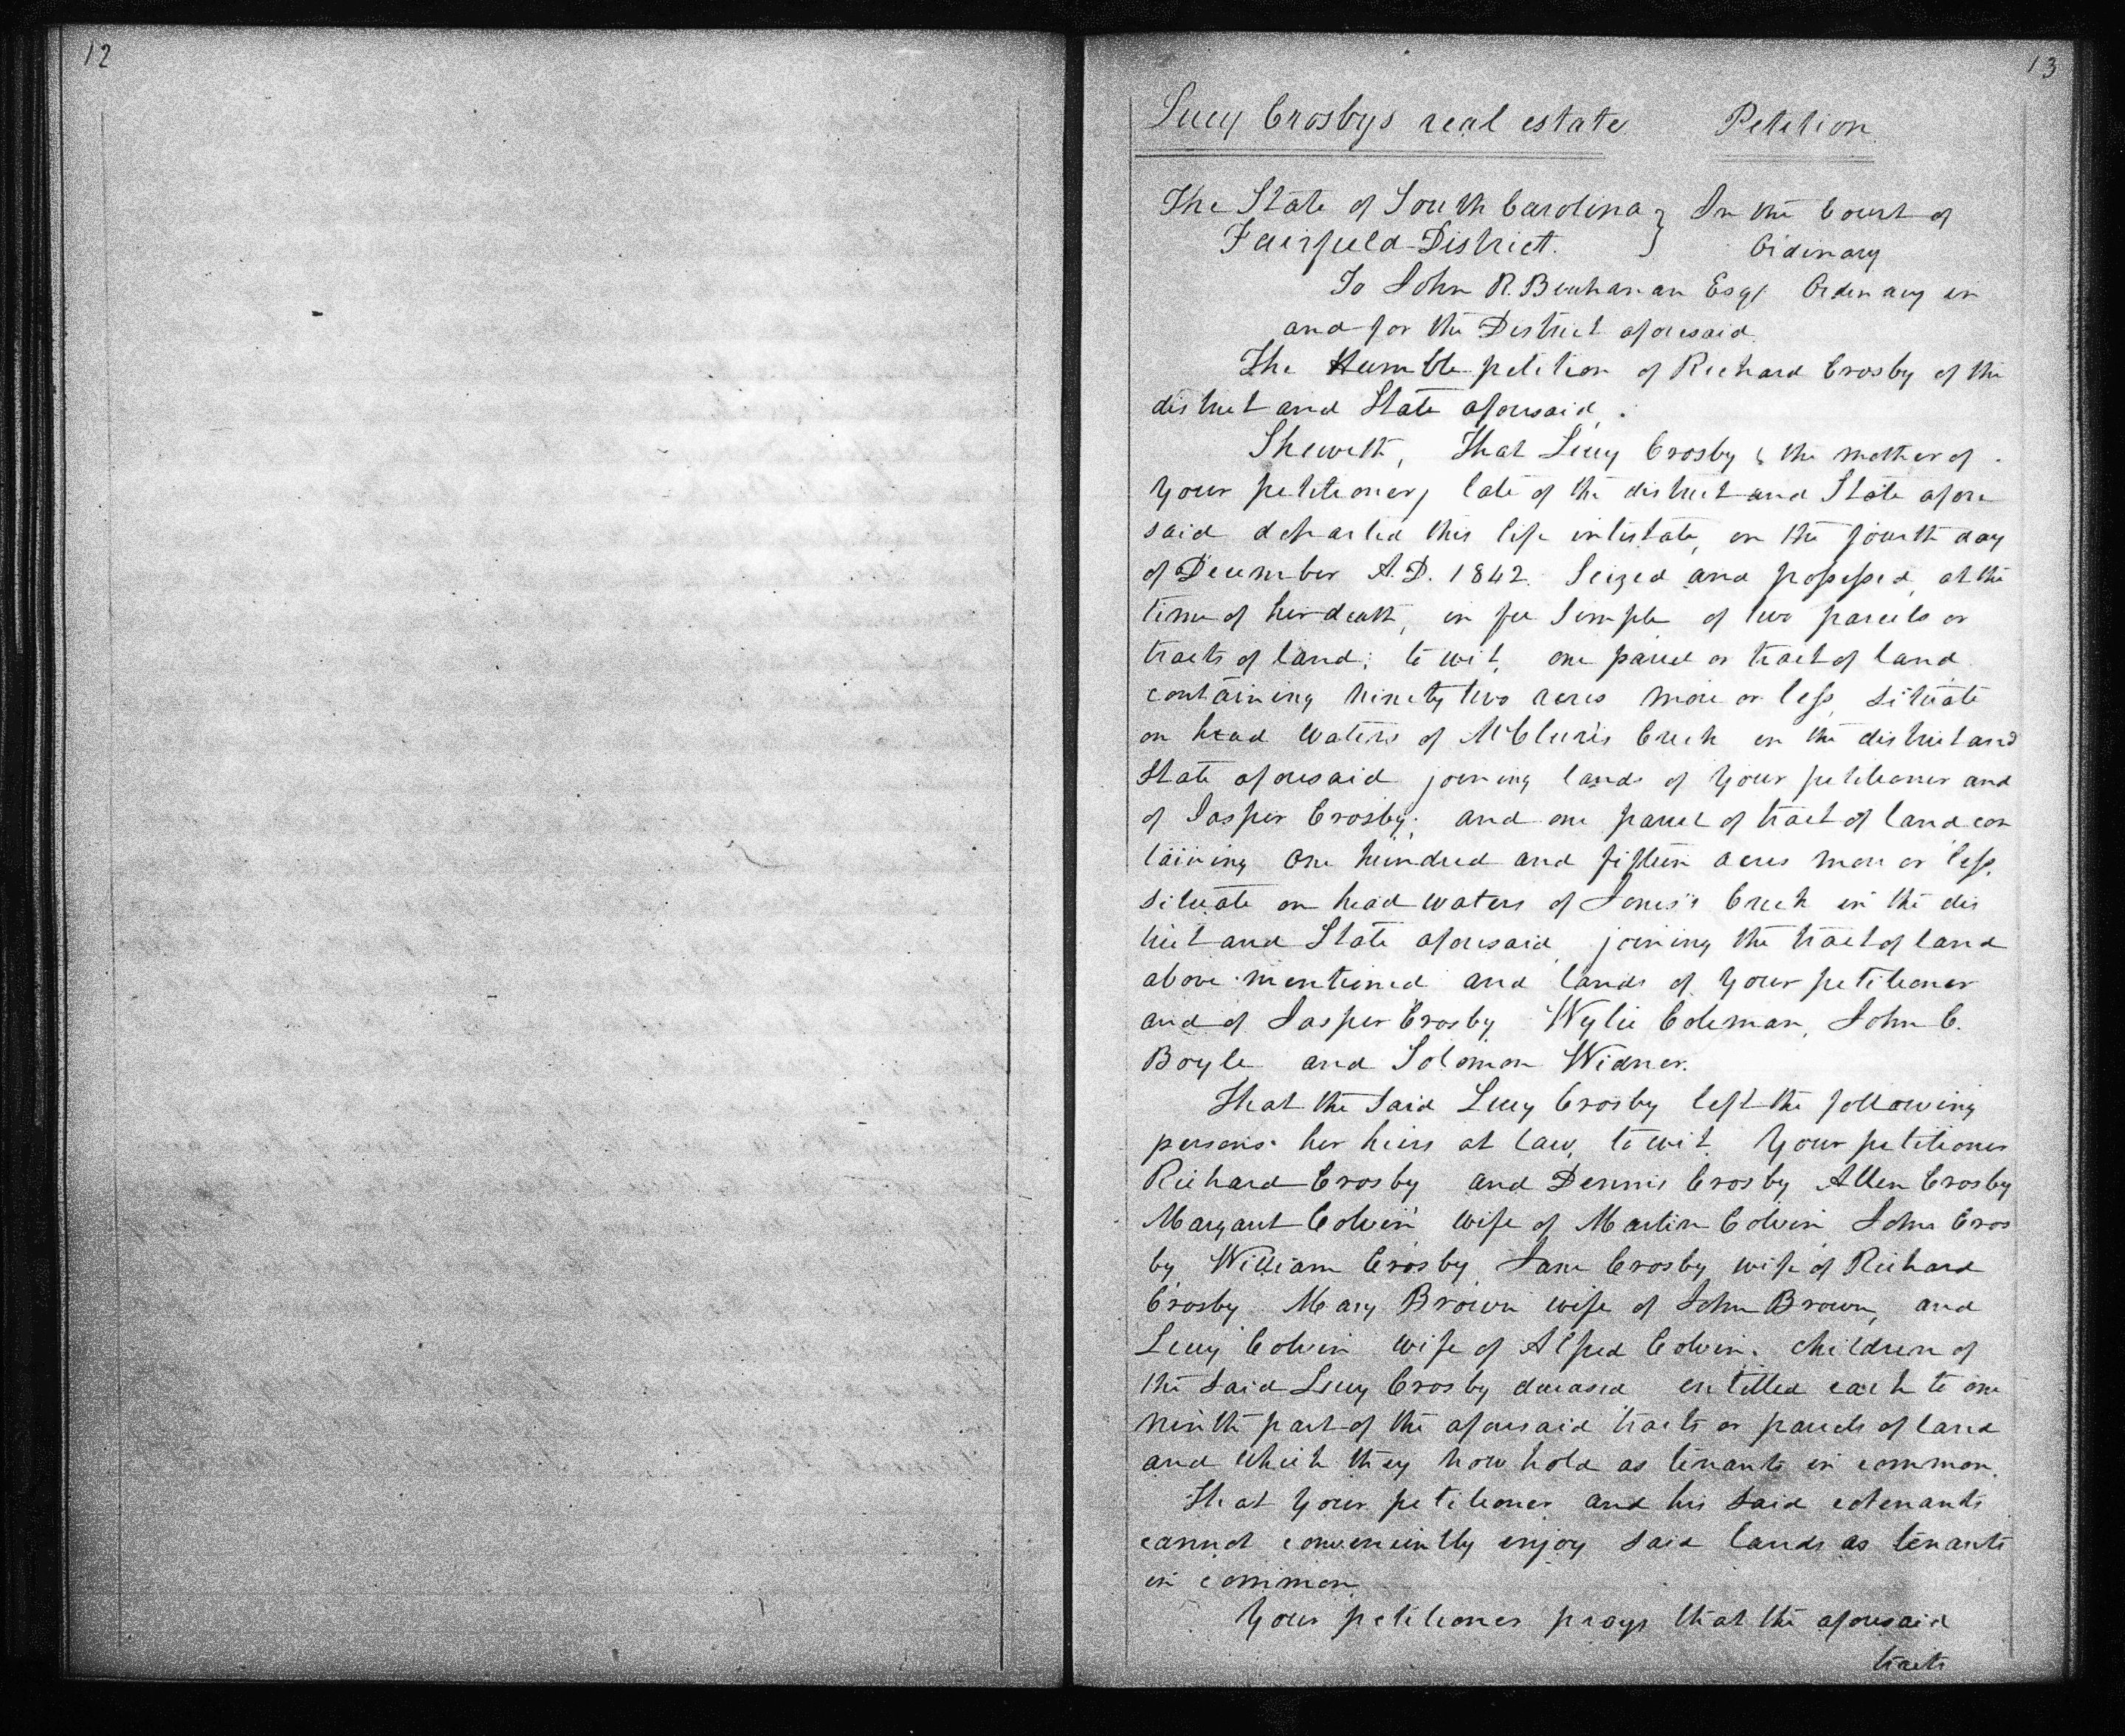 12
13
Lucy Crosbys real estate Petition
The State of South Carolina } In the Court of
Fairfield District. } Ordinary
To John R. Buchanan Esqr Ordinary in
and for the District aforesaid.
The Humble petition of Richard Crosby of the
district and State aforesaid.
Sheweth, That Lucy Crosby (the mother of
your petitioner) late of the district and State afore
said departed this life intestate, on the fourth day
of December A.D. 1842. Seized and possessed, at the
time of her death, in fee Simple of two parcels or
tracts of land; to wit, one parcel or tract of land
containing ninety two acres more or less, situate
on head waters of McClure's Creek in the district and
State aforesaid joining lands of your petitioner and
of Jasper Crosby; and one parcel of tract of land con
taining one hundred and fifteen acres more or less,
situate on head waters of Jones's Creek in the dis
trict and State aforesaid, joining the tract of land
above mentioned and lands of your petitioner
and of Jasper Crosby Wylie Coleman, John C.
Boyle and Solomon Widner.
That the said Lucy Crosby left the following
persons her heirs at law, to wit. Your petitioner
Richard Crosby and Dennis Crosby Allen Crosby
Margaret Colvin wife of Martin Colvin, John Cros
by William Crosby Jane Crosby wife of Richard
Crosby Mary Brown wife of John Brown, and
Lucy Colvin wife of Alfred Colvin. children of
the said Lucy Crosby deceased entitled each to one
ninth part of the aforesaid tracts or parcels of land
and which they now hold as tenants in common.
That your petitioner and his said cotenants
cannot conveniently enjoy said lands as tenants
in common.
Your petitioner prays that the aforesaid
tracts